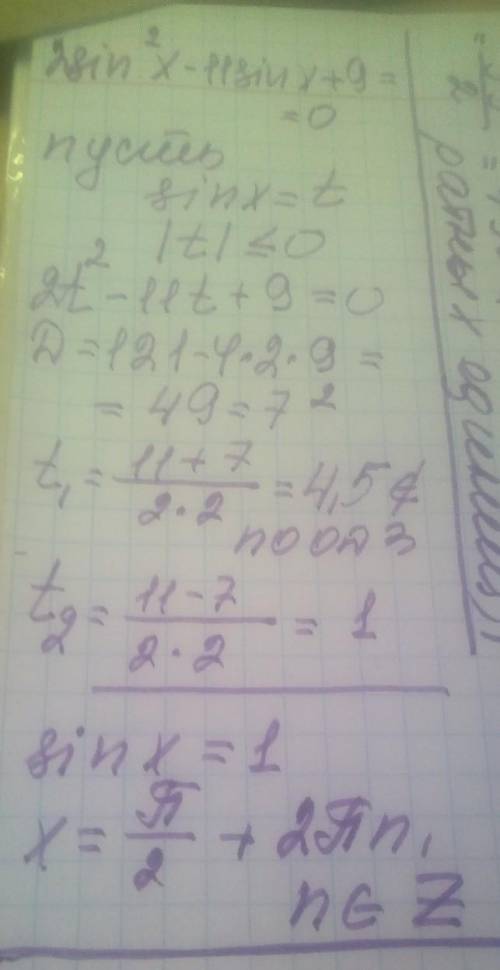 2sin²x - 11sinx + 9 =
= 0
пусть
sinx = t
|t| ≤ 0
2t² - 11t + 9 = 0
D = 121 - 4·2·9 =
= 49 = 7²
t₁ = (11 + 7)/(2·2) = 4,5 ∉
по ОДЗ
t₂ = (11 - 7)/(2·2) = 1
sinx = 1
x = П/2 + 2Пn,
n ∈ Z